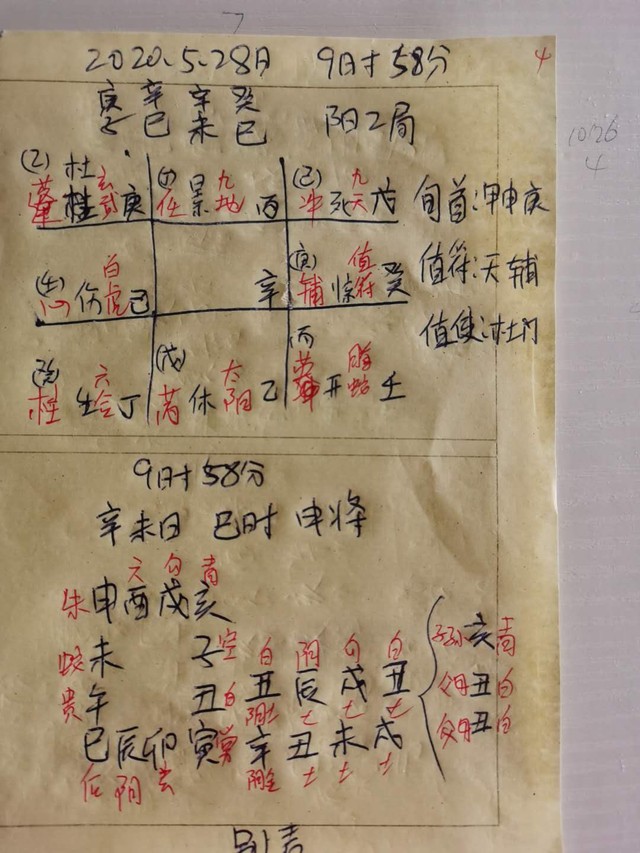 2020.5.28日 9时58分
4
庚 辛 辛 癸
子 巳 未 巳 阳二局
1026
4
(乙) 杜 玄武 庚
(丁) 任 景 九地 丙
(己) 冲 死 九天 戊
旬首:甲申庚
(壬) 心 伤 白虎 己
辛
(庚) 辅 惊 值符 癸
值符:天辅
值使:杜门
(癸) 柱 生 六合 丁
(戊) 芮 休 太阳 乙
(丙) 英 开 腾蛇 壬
9时58分
辛未日 巳时 申将
六 勾 青
朱 申 酉 戌 亥
蛇 未 子 空 白 阴 勾 白
贵 午 丑 白 丑 辰 戌 丑
阴土 土 土 土
巳 辰 卯 寅 常 辛 丑 未 戌
后 阴 玄 阴金 土 土 土
子孙 亥 青
父母 丑 白
父母 丑 白